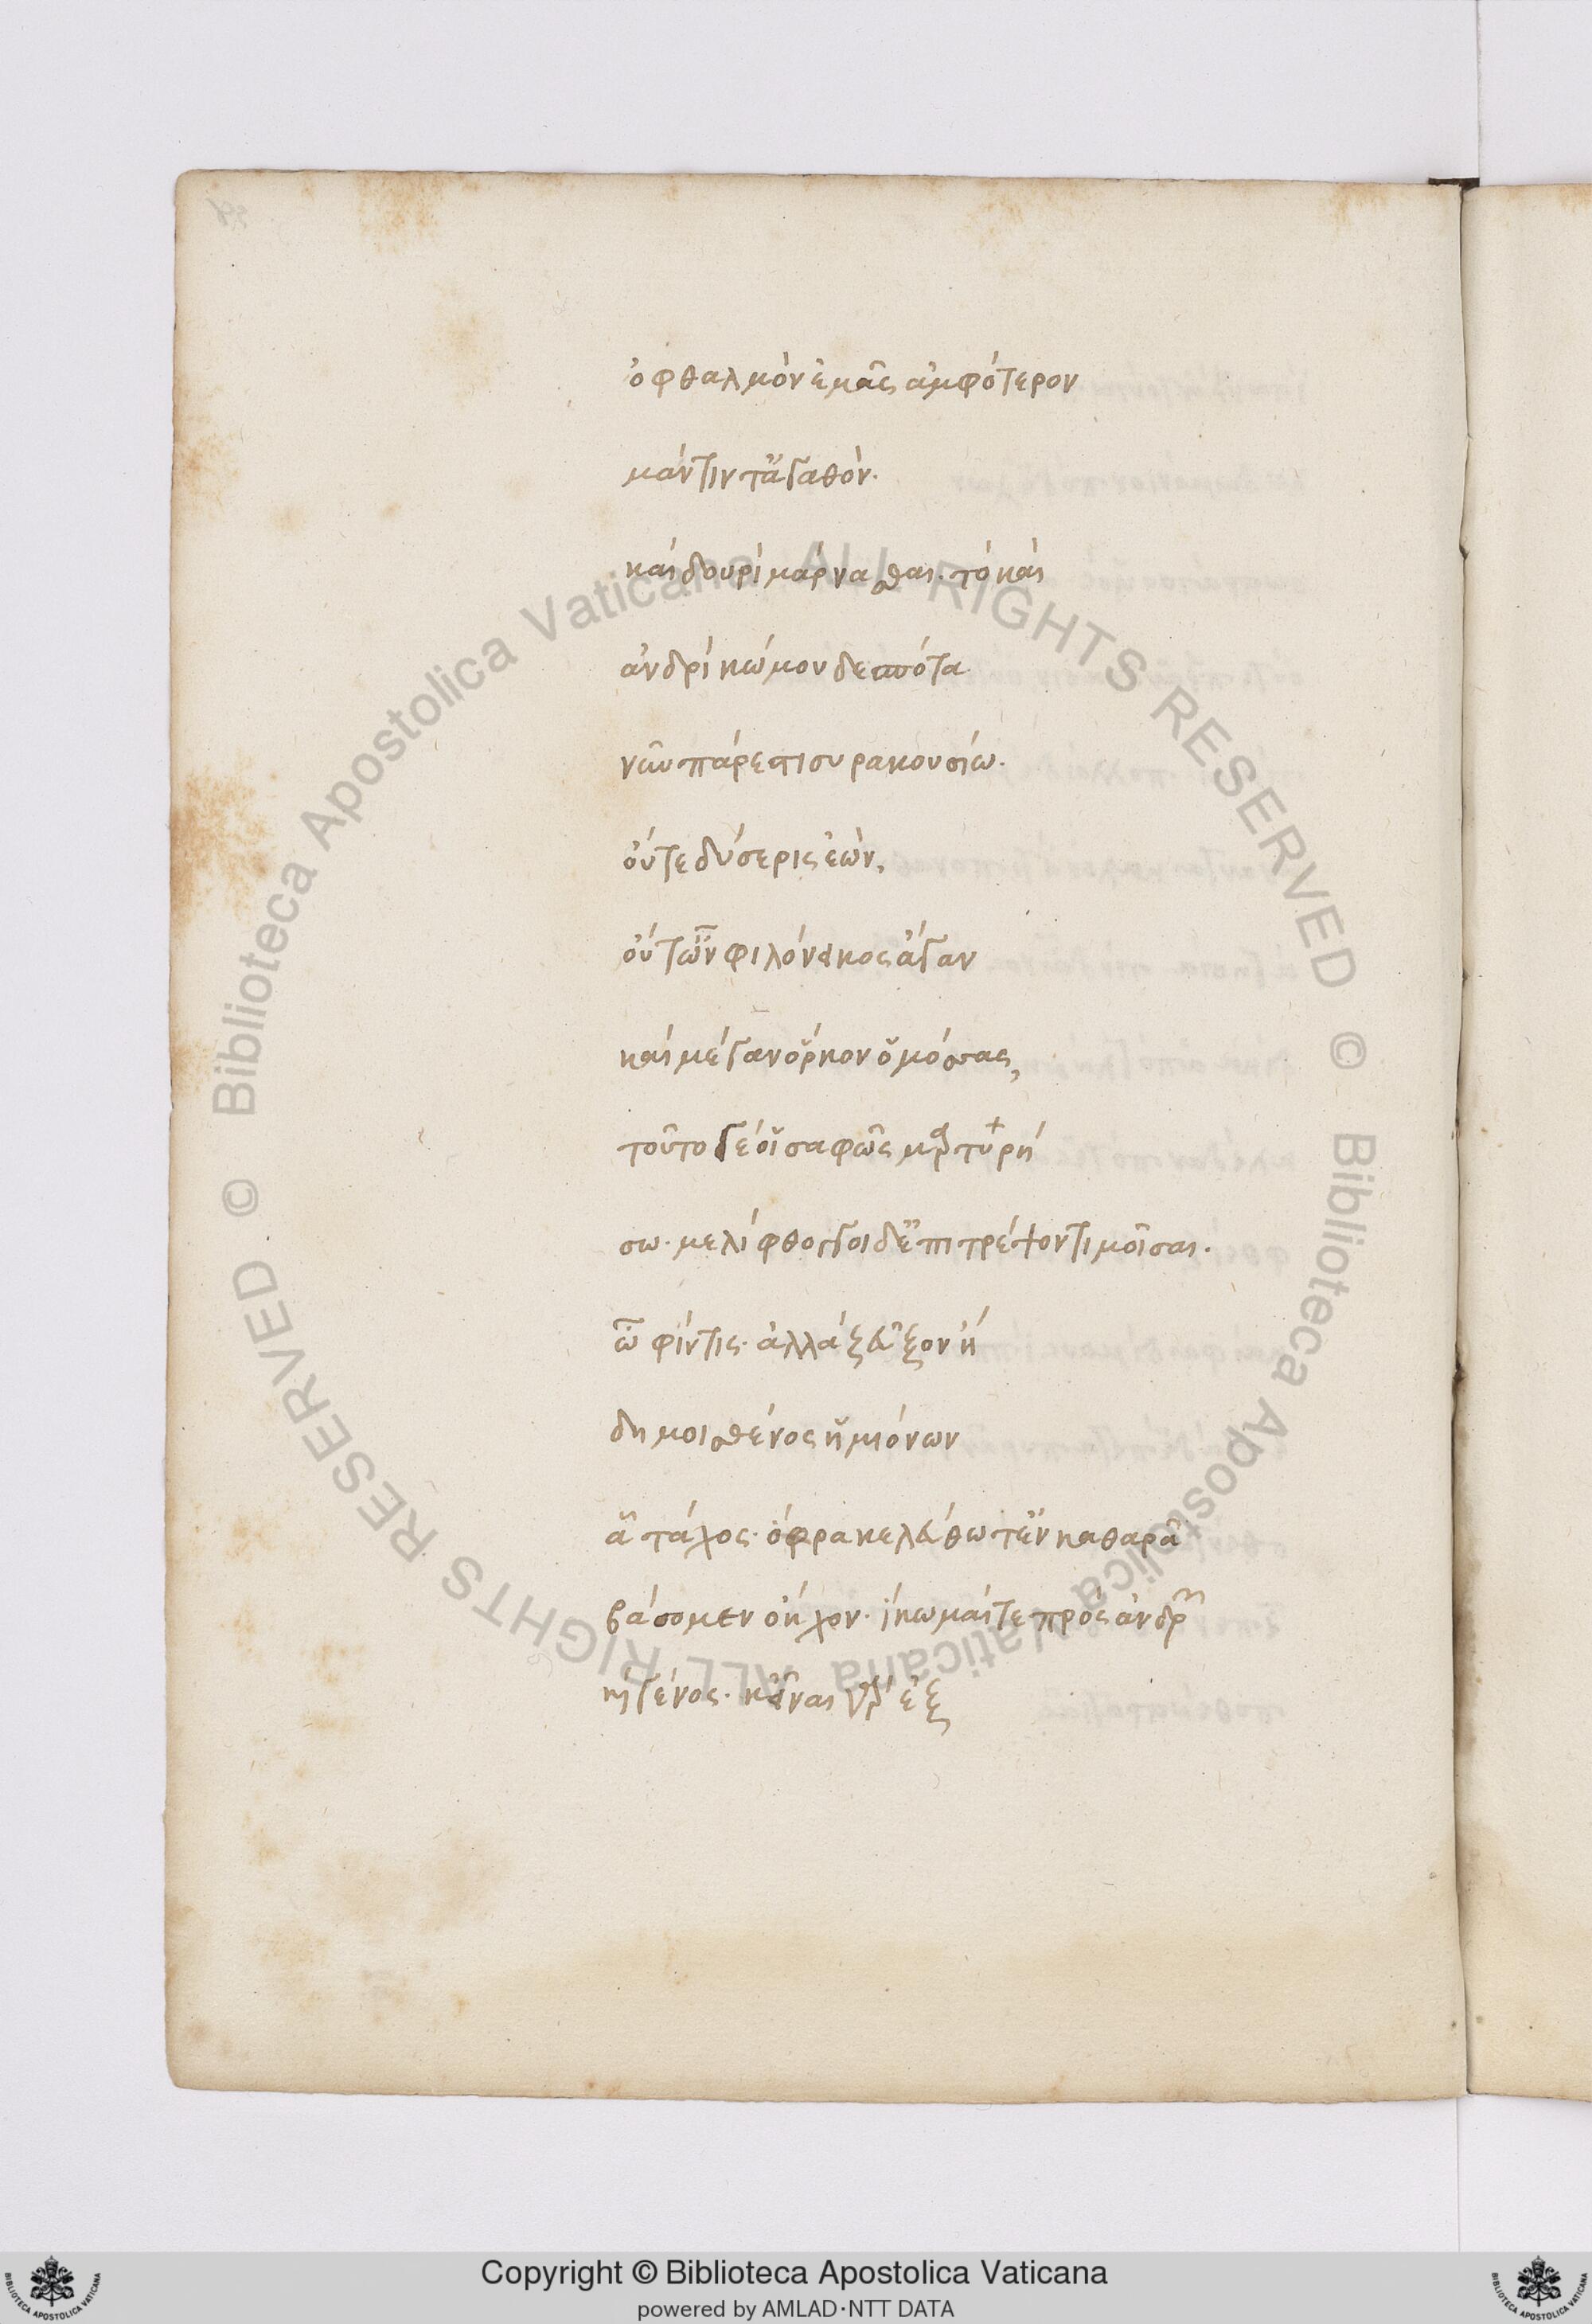 ὀφθαλμὸν ἐμᾶς ἀμφότερον
μάντιν τ' ἀγαθὸν.
καὶ δουρὶ μάρνασθαι. τὸ καὶ
ἀνδρὶ κώμου δεσπότα
νῶν πάρεστι συρακουσίω.
οὔτε δύσερις ἐὼν,
οὔτ' ὢν φιλόνεικος ἄγαν
καὶ μέγαν ὅρκον ὀμόσσας,
τοῦτό γέ οἱ σαφῶς μαρτυρή
σω. μελίφθογγοι δ' ἐπιτρέψοντι μοῖσαι.
ὦ φίντις. ἀλλὰ ζεῦξον ἤ
δη μοι σθένος ἡμιόνων
ᾇ τάχος. ὄφρα κελεύθω τ' ἐν καθαρᾷ
βάσομεν ὄκχον. ἵκωμαί τε πρὸς ἀνδρῶν
καὶ γένος. κεῖναι γὰρ ἐξ
Copyright © Biblioteca Apostolica Vaticana
powered by AMLAD·NTT DATA
© Biblioteca Apostolica Vaticana ALL RIGHTS RESERVED © Biblioteca Apostolica Vaticana ALL RIGHTS RESERVED